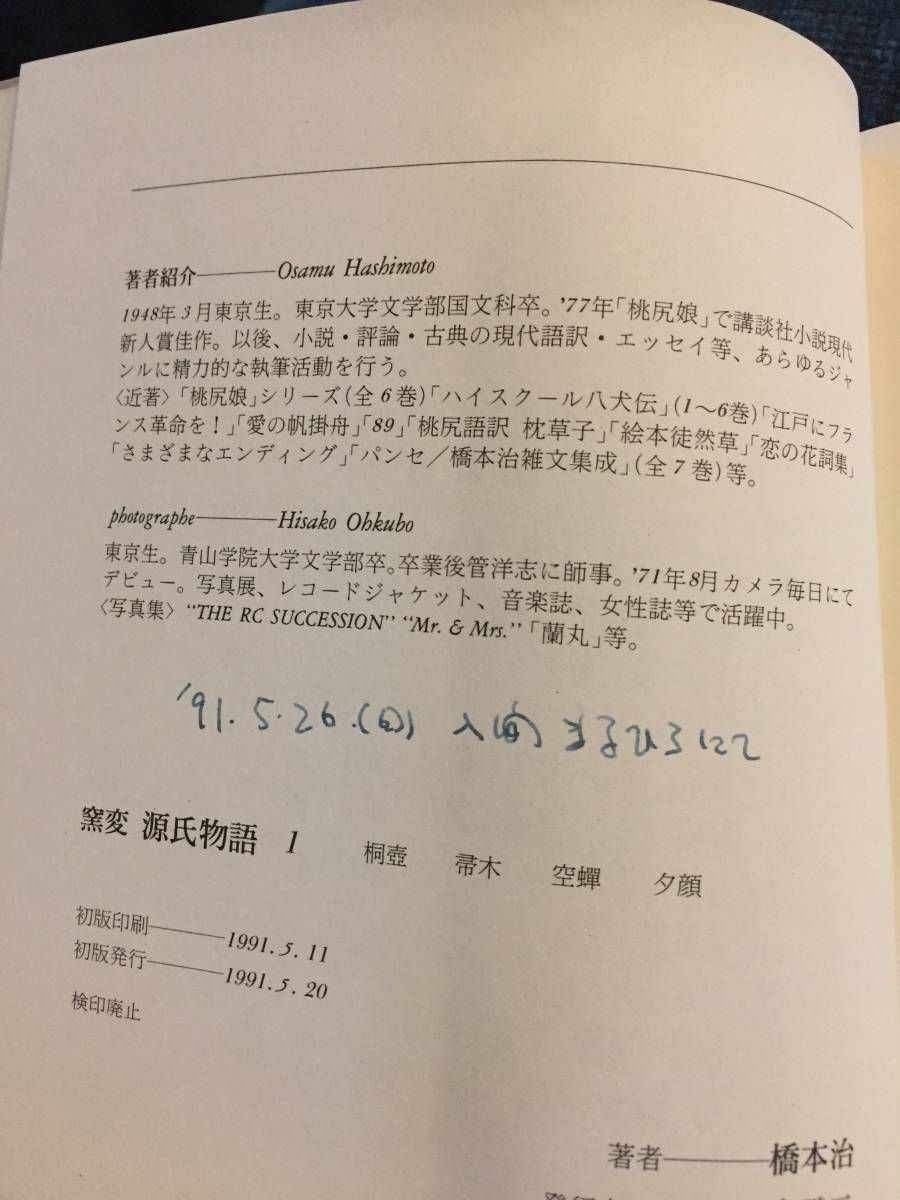 著者紹介――Osamu Hashimoto
1948年3月東京生。東京大学文学部国文科卒。’77年「桃尻娘」で講談社小説現代
新人賞佳作。以後、小説・評論・古典の現代語訳・エッセイ等、あらゆるジャ
ンルに精力的な執筆活動を行う。
〈近著〉「桃尻娘」シリーズ(全6巻)「ハイスクール八犬伝」(1〜6巻)「江戸にフラ
ンス革命を!」「愛の帆掛舟」「89」「桃尻語訳 枕草子」「絵本徒然草」「恋の花詞集」
「さまざまなエンディング」「パンセ/橋本治雑文集成」(全7巻)等。
photographe――Hisako Ohkubo
東京生。青山学院大学文学部卒。卒業後管洋志に師事。’71年8月カメラ毎日にて
デビュー。写真展、レコードジャケット、音楽誌、女性誌等で活躍中。
〈写真集〉“THE RC SUCCESSION” “Mr. & Mrs.”「蘭丸」等。
'91.5.26.(日) 入間 まるひろにて
窯変 源氏物語 1 桐壺 帚木 空蟬 夕顔
初版印刷――1991.5.11
初版発行――1991.5.20
検印廃止
著者――橋本治